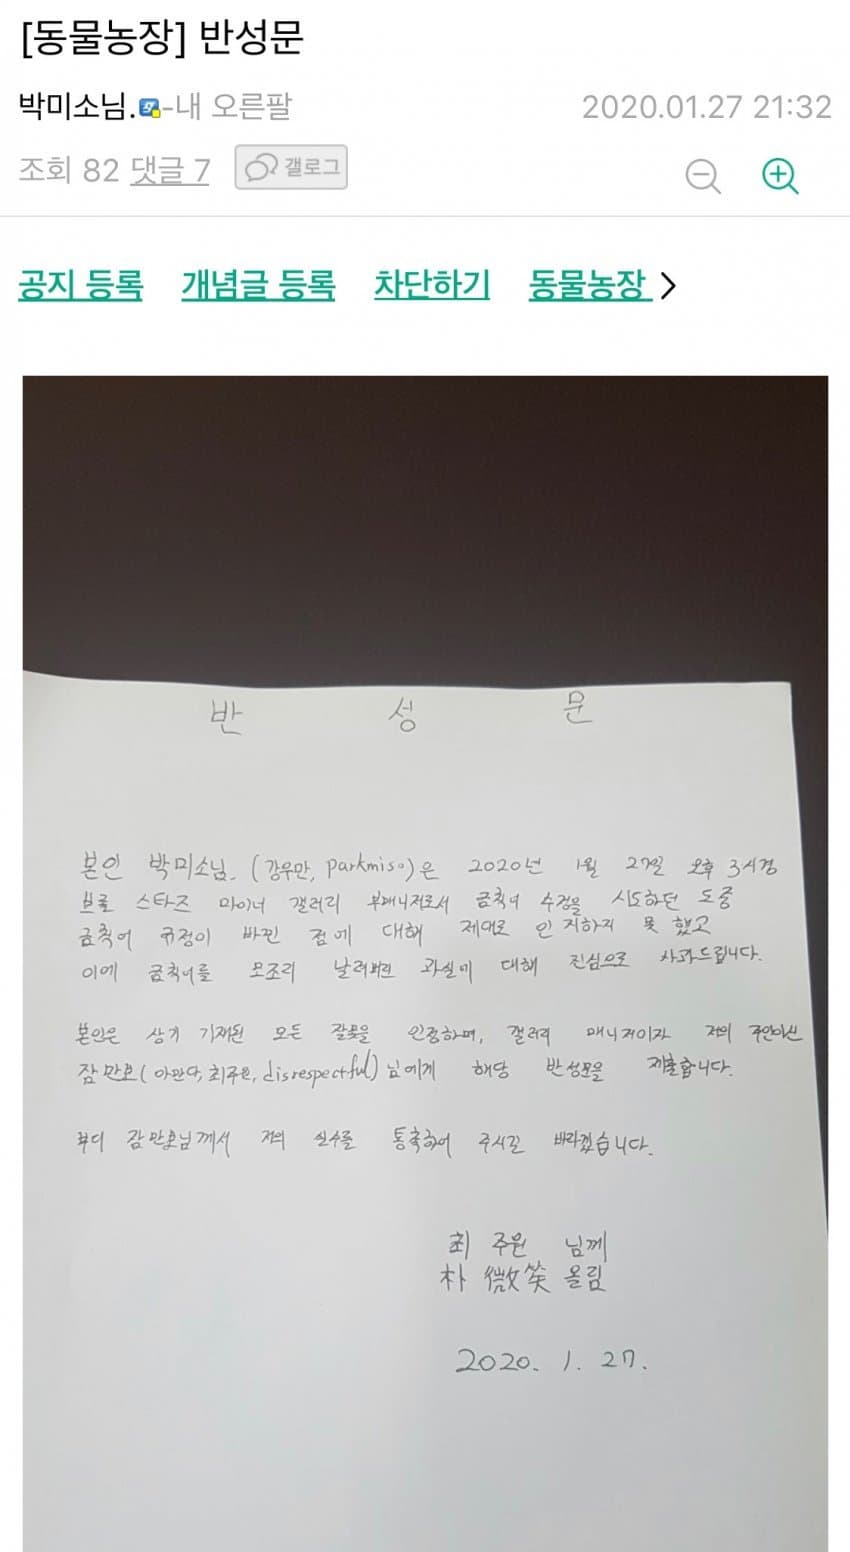 [동물농장] 반성문
박미소님.-내 오른팔
2020.01.27 21:32
조회 82 댓글 7 갤로그
공지 등록 개념글 등록 차단하기 동물농장
반 성 문
본인 박미소님. (강우만, parkmiso)은 2020년 1월 27일 오후 3시경
브롤 스타즈 마이너 갤러리 부매니저로서 금칙어 수정을 시도하던 도중
금칙어 규정이 바뀐 점에 대해 제대로 인지하지 못 했고
이에 금칙어를 모조리 날려버린 과실에 대해 진심으로 사과드립니다.
본인은 상기 기재된 모든 잘못을 인정하며, 갤러리 매니저이자 저의 주인이신
잠만보(아만다, 최주원, disrespectful)님에게 해당 반성문을 제출합니다.
부디 잠만보님께서 저의 실수를 통촉하여 주시길 바라겠습니다.
최 주원 님께
朴 微笑 올림
2020. 1. 27.